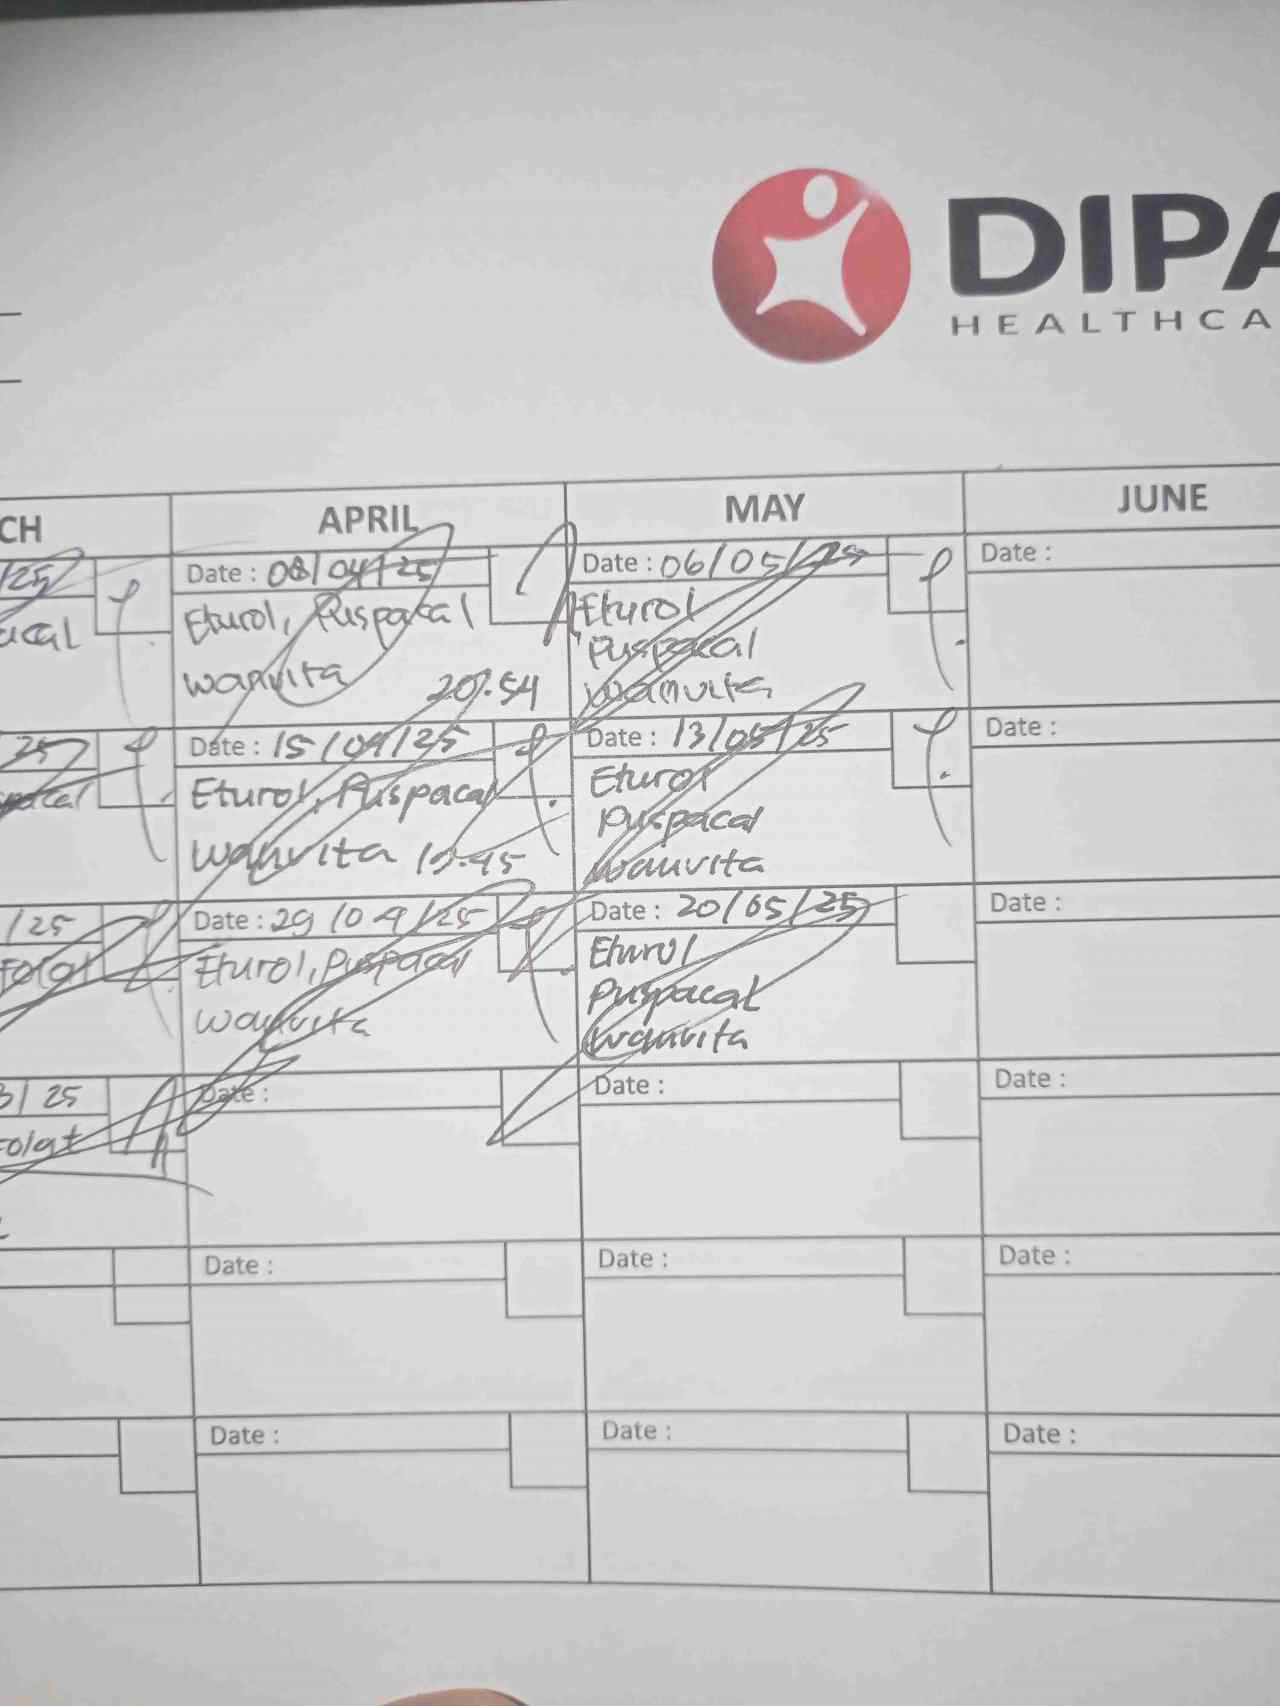 DIPA
HEALTHCA
CH
APRIL
MAY
JUNE
/25
acal
Date : 08/04/25
Eturol, Puspacal
wanvita
20.54
Date : 06/05/25
Eturol
Puspacal
wanvita
Date :
25
pacal
Date : 15/04/25
Eturol, Puspacal
wanvita 19.45
Date : 13/05/25
Eturol
Puspacal
wanvita
Date :
/25
Folat
Date : 29/04/25
Eturol, Puspacal
wanvita
Date : 20/05/25
Eturol
Puspacal
wanvita
Date :
3/25
Folat
Date :
Date :
Date :
Date :
Date :
Date :
Date :
Date :
Date :